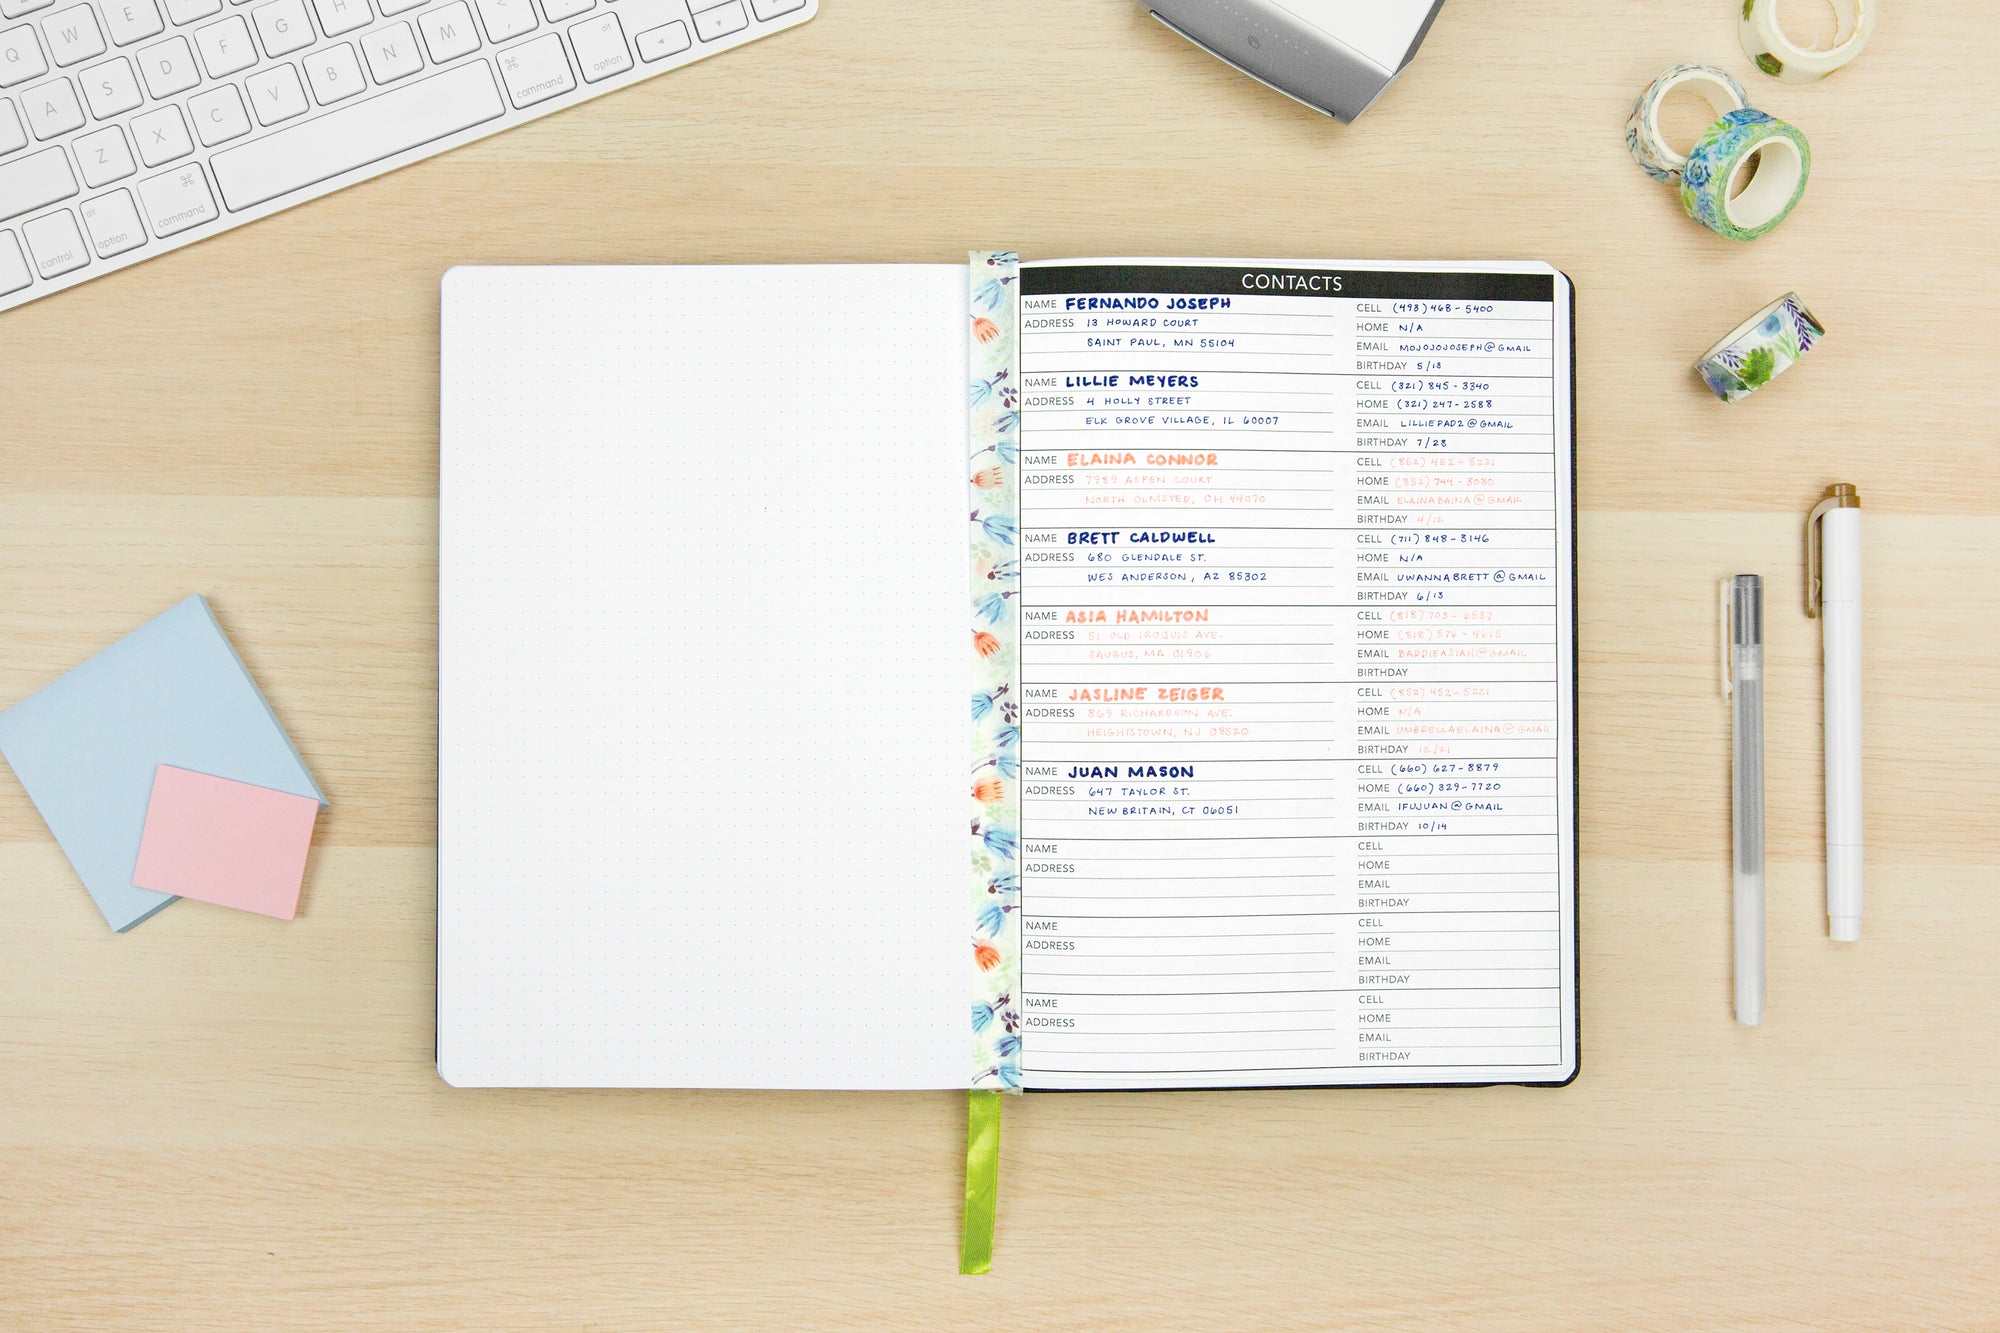 Q W E R F G H
A S D F G H
Z X C V B N M
command
alt option
control
alt option
command
CONTACTS
NAME FERNANDO JOSEPH
ADDRESS 13 HOWARD COURT
SAINT PAUL, MN 55104
CELL (493) 468-5400
HOME N/A
EMAIL MOJOJOJOSEPH@GMAIL
BIRTHDAY 5/13
NAME LILLIE MEYERS
ADDRESS 4 HOLLY STREET
ELK GROVE VILLAGE, IL 60007
CELL (321) 845-3340
HOME (321) 247-2588
EMAIL LILLIEPADZ@GMAIL
BIRTHDAY 7/28
NAME ELAINA CONNOR
ADDRESS 7989 ASPEN COURT
NORTH OLMSTED, OH 44070
CELL (852) 452-5221
HOME (852) 744-3080
EMAIL ELAINABAINA@GMAIL
BIRTHDAY 4/12
NAME BRETT CALDWELL
ADDRESS 680 GLENDALE ST.
WES ANDERSON, AZ 85302
CELL (711) 848-3146
HOME N/A
EMAIL UWANNABRETT@GMAIL
BIRTHDAY 6/13
NAME ASIA HAMILTON
ADDRESS 51 OLD IROQUIS AVE.
SAUGUS, MA 01906
CELL (818) 703-6557
HOME (818) 576-4615
EMAIL BADDIEASIAH@GMAIL
BIRTHDAY
NAME JASLINE ZEIGER
ADDRESS 869 RICHARDSON AVE.
HEIGHTSTOWN, NJ 08520
CELL (852) 452-5221
HOME N/A
EMAIL UMBRELLAELAINA@GMAIL
BIRTHDAY 12/21
NAME JUAN MASON
ADDRESS 647 TAYLOR ST.
NEW BRITAIN, CT 06051
CELL (660) 627-8879
HOME (660) 329-7720
EMAIL IFUJUAN@GMAIL
BIRTHDAY 10/14
NAME
ADDRESS
CELL
HOME
EMAIL
BIRTHDAY
NAME
ADDRESS
CELL
HOME
EMAIL
BIRTHDAY
NAME
ADDRESS
CELL
HOME
EMAIL
BIRTHDAY